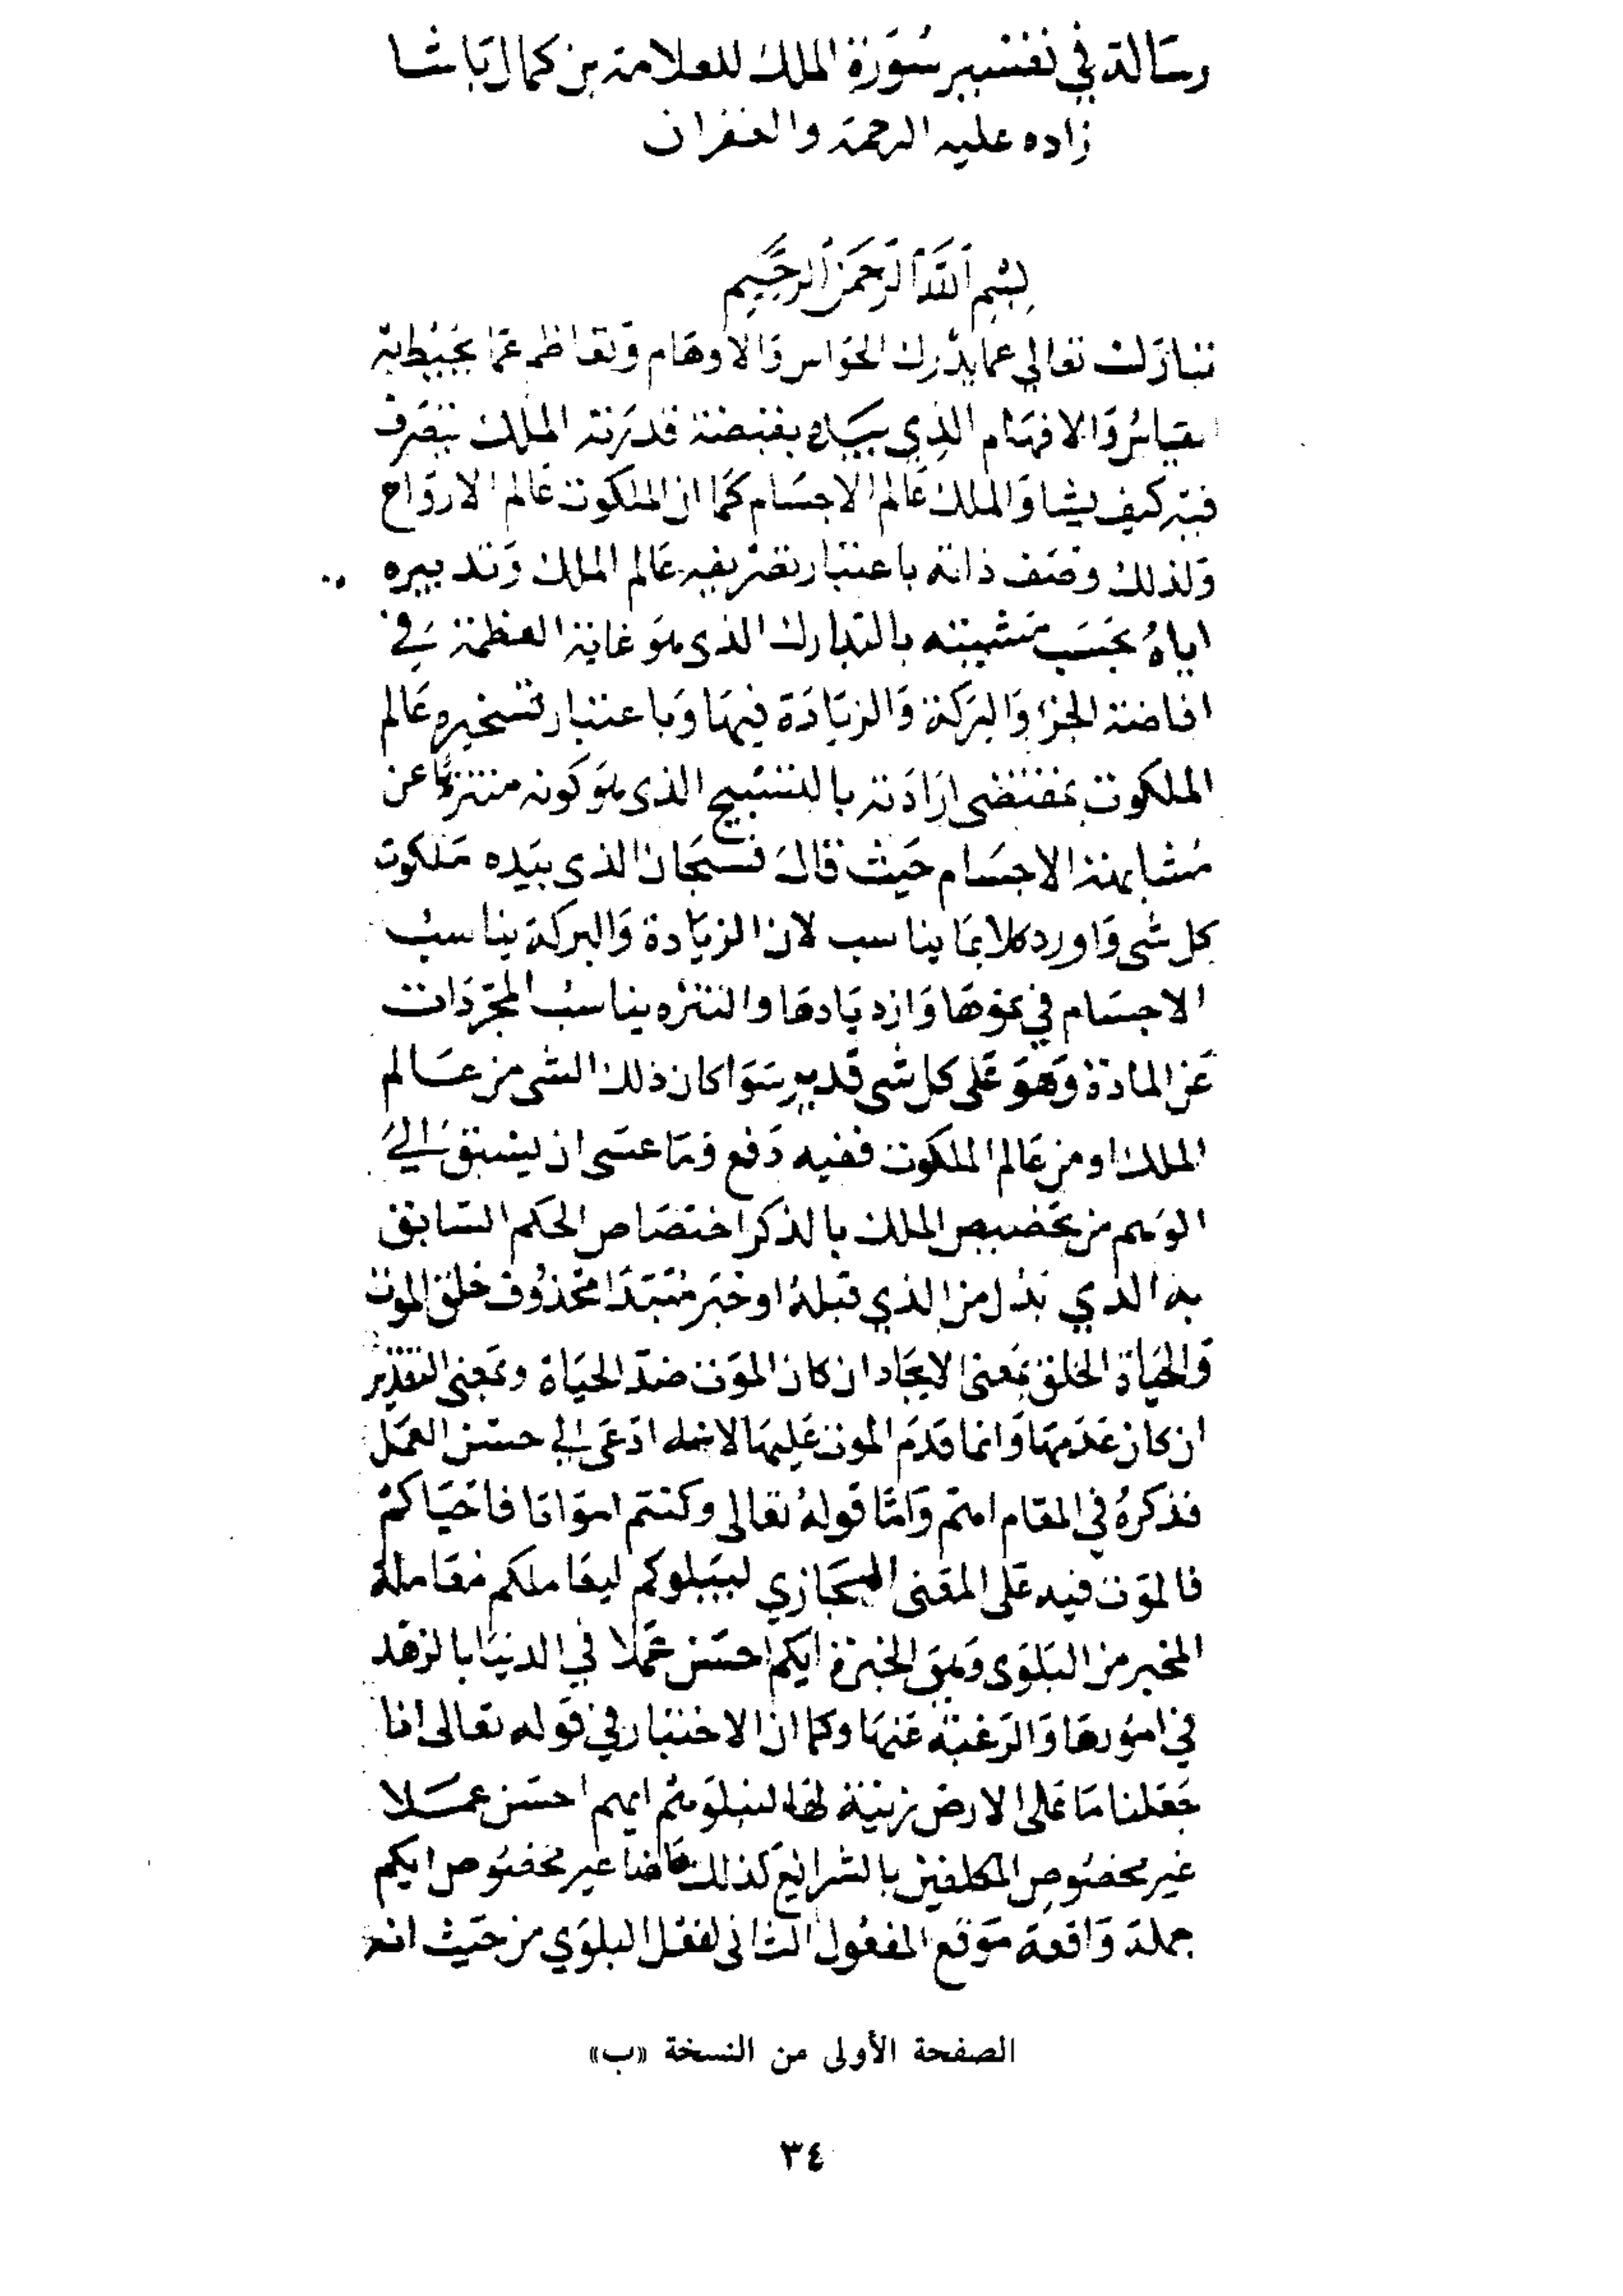 رسالة في تفسير سورة الملك للعلامة بن كمال باشا
زاده عليه الرحمة والغفران
بسم الله الرحمن الرحيم
تبارك تعالى عما يدرك الحواس والاوهام وتعاظم عما يحيط به
القياس والافهام الذي بيده بقبضة قدرته الملك يتصرف
فيه كيف يشا والملك عالم الاجسام كما ان الملكوت عالم الارواح
ولذلك وصف ذاته باعتبار تصريفه عالم الملك وتدبيره
اياه بحسب مشيته بالتبارك الذى هو غاية العظمة في
افاضة الخير والبركة والزيادة فيها وباعتبار تسخيره عالم
الملكوت بمقتضى ارادته بالتسبيح الذى هو كونه منتزها عن
مشابهة الاجسام حيث قال فسبحان الذى بيده ملكوت
كل شى واورد كلا بما يناسب لان الزيادة والبركة يناسب
الاجسام في نموها وازديادها والتنزه يناسب المجردات
عن المادة وهو على كل شى قدير سوا كان ذلك الشى من عالم
الملك او من عالم الملكوت ففيه دفع وما عسى ان يستبق الى
الوهم من تخصيص الملك بالذكر اختصاص الحكم السابق
به الذي بدل من الذي قبله او خبر مبتدا محذوف خلق الموت
والحياة الخلق بمعنى الايجاد ان كان الموت ضد الحياة وبمعنى التقدير
ان كان عدمها وانما قدم الموت عليها لانه ادعى الى حسن العمل
فذكره في المقام اهم واما قوله تعالى وكنتم امواتا فاحياكم
فالموت فيه على المعنى المجازي ليبلوكم ليعاملكم معاملة
المخبر من البلوى وهي الخبرة ايكم احسن عملا في الدنيا بالزهد
في امورها والرغبة عنها وكما ان الاختبار في قوله تعالى انا
جعلنا ما على الارض زينة لها لنبلوهم ايهم احسن عملا
غير مخصوص المكلفين بالشرائع كذلك هاهنا غير مخصوص ايكم
جملة واقعة موقع المفعول الثانى لفعل البلوي من حيث انه
الصفحة الأولى من النسخة «ب»
٣٤